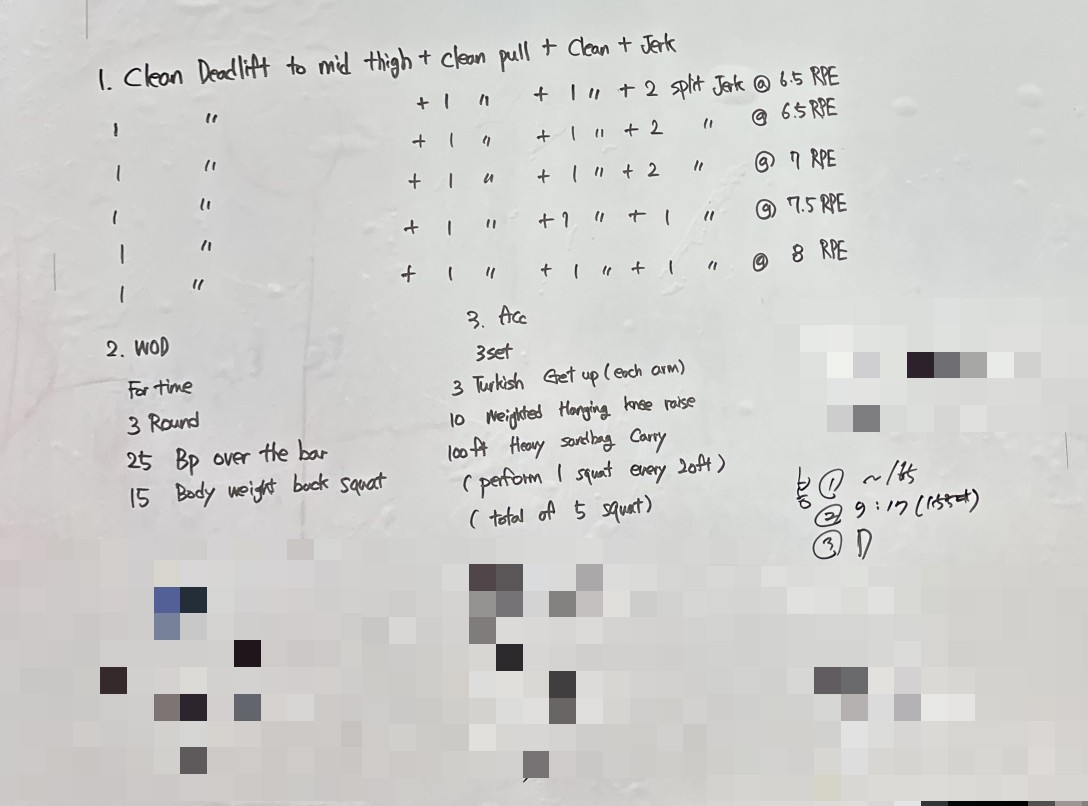 1. Clean Deadlift to mid thigh + clean pull + Clean + Jerk
1 〃 + 1 〃 + 1 〃 + 2 split Jerk @ 6.5 RPE
1 〃 + 1 〃 + 1 〃 + 2 〃 @ 6.5 RPE
1 〃 + 1 〃 + 1 〃 + 2 〃 @ 7 RPE
1 〃 + 1 〃 + 1 〃 + 1 〃 @ 7.5 RPE
1 〃 + 1 〃 + 1 〃 + 1 〃 @ 8 RPE
2. WOD
For time
3 Round
25 Bp over the bar
15 Body weight back squat
3. Acc
3set
3 Turkish Get up (each arm)
10 Weighted Hanging knee raise
100ft Heavy sandbag Carry
(perform 1 squat every 20ft)
(total of 5 squat)
① ~185
② 9:17
③ D